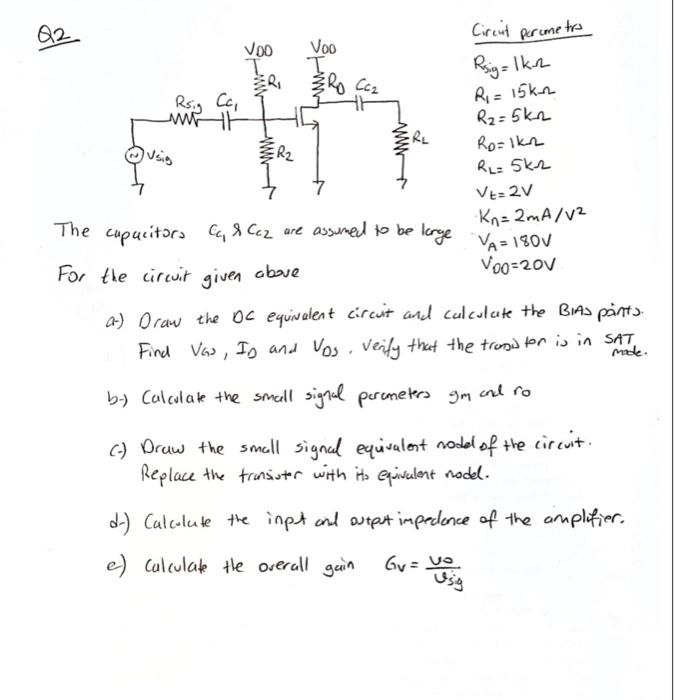 Q2
Circuit parametrs
VDD VDD
Rsig = 1kΩ
R1 RD Cc2
R1 = 15kΩ
Rsig Cc1
R2 = 5kΩ
RL
RD = 1kΩ
Vsig R2
RL = 5kΩ
Vt = 2V
Kn = 2mA/V²
The capacitors Cc1 & Cc2 are assumed to be large
VA = 180V
For the circuit given above
VDD = 20V
a-) Draw the DC equivalent circuit and calculate the BIAS points.
Find VGS, ID and VDS. Verify that the transistor is in SAT mode.
b-) Calculate the small signal parameters gm and ro
c-) Draw the small signal equivalent model of the circuit.
Replace the transistor with its equivalent model.
d-) Calculate the input and output impedance of the amplifier.
e-) Calculate the overall gain Gv = vo/vsig